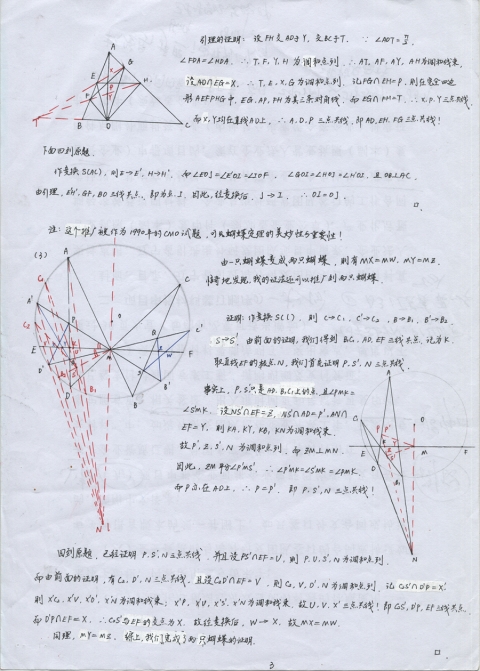 引理的证明: 设FH交AD于Y, 交BC于T. ∵ ∠ADT = π/2,
∠FDA=∠HDA. ∴ T, F, Y, H 为调和点列. ∴ AT, AF, AY, AH为调和线束.
设AD∩EG=X. ∴ T, E, X, G为调和点列. 记FG∩EH=P, 则在完全四边
形AEFPHG中, EG, AP, FH为其三条对角线. 而EG∩FH=T. ∴ X, P, Y三点共线.
而X, Y均在直线AD上, ∴ A, D, P三点共线, 即AD, EH, FG三点共线!
下面回到原题.
作变换S(AC), 则E→E', H→H'. 而∠EOJ=∠E'OI=∠IOF, ∠GOI=∠HOJ=∠H'OI. 且OB⊥AC.
由引理, E'H', GF, BO三线共点, 即为点I. 因此, 经变换后, J→I. ∴ OI=OJ.
□.
注: 这个推广被作为1990年的CMO试题, 可见蝴蝶定理的美妙性与重要性!
(3)
由一只蝴蝶变成两只蝴蝶, 则有MX=MW, MY=MZ.
惊奇地发现, 我的证法还可以推广到两只蝴蝶.
证明: 作变换S(l), 则C→C₁, C'→C₂, B→B₁, B'→B₂
S→S'. 由前面的证明, 我们得到B₁C₁, AD, EF三线共点, 记为K.
取直线EF的极点N, 我们首先证明P, S', N三点共线.
事实上, P, S'只是AD, B₁C₁上的点, 且∠PMK=
∠S'MK. 设NS'∩EF=Z, NS'∩AD=P', AN∩
EF=Y. 则KA, KY, KB, KN为调和线束.
故P', Z, S', N为调和点列, 而ZM⊥MN.
因此, ZM平分∠P'MS'. ∴ ∠P'MK=∠S'MK=∠PMK.
而P亦在AD上, ∴ P=P'. 即P, S', N三点共线!
回到原题, 已经证明P, S', N三点共线, 并且设PS'∩EF=U, 则P, U, S', N为调和点列.
而由前面的证明, 有C₂, D', N三点共线, 且设C₂D'∩EF=V. 则C₂, V, D', N为调和点列. 记C₂S'∩D'P=X'
则X'C₂, X'V, X'D', X'N为调和线束; X'P, X'U, X'S', X'N为调和线束. 故U, V, X'三点共线! 即C₂S', D'P, EF三线共点.
而D'P∩EF=X. ∴ C₂S'与EF的交点为X. 故经变换后, W→X. 故MX=MW.
同理, MY=MZ. 综上, 我们完成了两只蝴蝶的证明.
□.
3